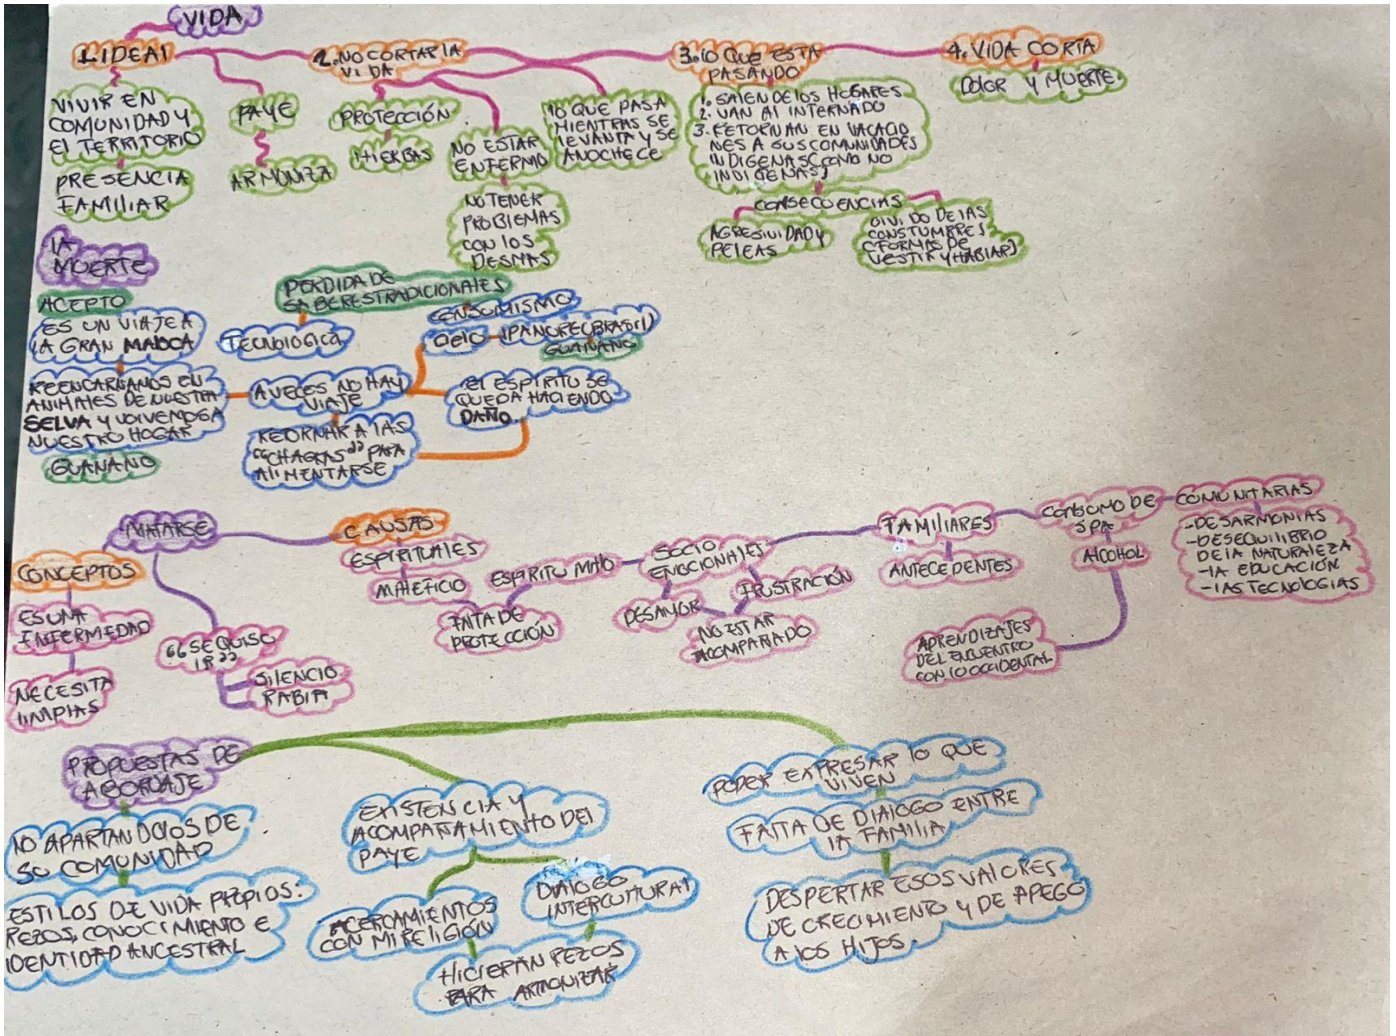 VIDA
1. IDEAl
2. NO CORTAR lA
VIDA
3. lO QUE ESTA
PASANDO
4. VIDA CORTA
VIVIR EN
COMUNIDAD Y
El TERRITORIO
PRESENCIA
FAMILIAR
PAYE
ARMONIZA
PROTECCIÓN
HIERBAS
NO ESTAR
ENFERMO
NO TENER
PROBLEMAS
CON lOS
DESMAS
lO QUE PASA
MIENTRAS SE
lEVANTA Y SE
ANOCHECE
1. SAlEN DE lOS HOGARES
2. VAN Al INTERNADO
3. RETORNAN EN VACACIO
NES A SUS COMUNIDADES
INDIGENAS (COMO NO
INDIGENAS)
CONSECUENCIAS
AGRESIVIDAD Y
PELEAS
OlVIDO DE lAS
CONSTUMBRES
(FORMAS DE
VESTIR Y HABlAR)
DOlOR Y MUERTE.
lA
MUERTE
ACEPTO
ES UN VIAJE A
lA GRAN MALOCA
REENCARNANOS EN
ANIMALES DE NUESTRA
SELVA Y VOlVEMOS A
NUESTRO HOGAR
GUANANO
PERDIDA DE
SABERES TRADICIONAlES
TECNOlOGICA
CONSUMISMO
GUANANO
A VECES NO HAY
VIAJE
El ESPIRITU SE
QUEDA HACIENDO
DAÑO.
RETORNAR A lAS
"CHAGRAS" PARA
AlIMENTARSE
MATARSE
CONCEPTOS
ES UNA
ENFERMEDAD
NECESITA
lIMPIAS
"SE QUISO
IR"
SIlENCIO
RABIA
CAUSAS
ESPIRITUAlES
MAlEFICIO
FAlTA DE
PROTECCIÓN
ESPIRITU MAlO
SOCIO
EMOCIONAlES
DESAMOR
NO ESTAR
ACOMPAÑADO
FRUSTRACIÓN
FAMIlIARES
ANTECEDENTES
CONSUMO DE
SPA
AlCOHOL
APRENDIZAJES
DEL ENCUENTRO
CON lO OCCIDENTAl
COMUNITARIAS
-DESARMONIAS
-DESEQUIlIBRIO
DE lA NATURAlEZA
-lA EDUCACIÓN
-lAS TECNOlOGIAS
PROPUESTAS DE
ABORDAJE
NO APARTANDOlOS DE
SU COMUNIDAD
ESTILOS DE VIDA PROPIOS:
REZOS, CONOCIMIENTO E
IDENTIDAD ANCESTRAL
EXISTENCIA Y
ACOMPAÑAMIENTO DEl
PAYE
ACERCAMIENTOS
CON MI RElIGIÓN
DIAlOGO
INTERCUlTURAl
HICIERAN REZOS
PARA ARMONIZAR
PODER EXPRESAR lO QUE
VIVEN
FAlTA DE DIAlOGO ENTRE
lA FAMIlIA
DESPERTAR ESOS VALORES
DE CRECIMIENTO Y DE APEGO
A lOS HIJOS.